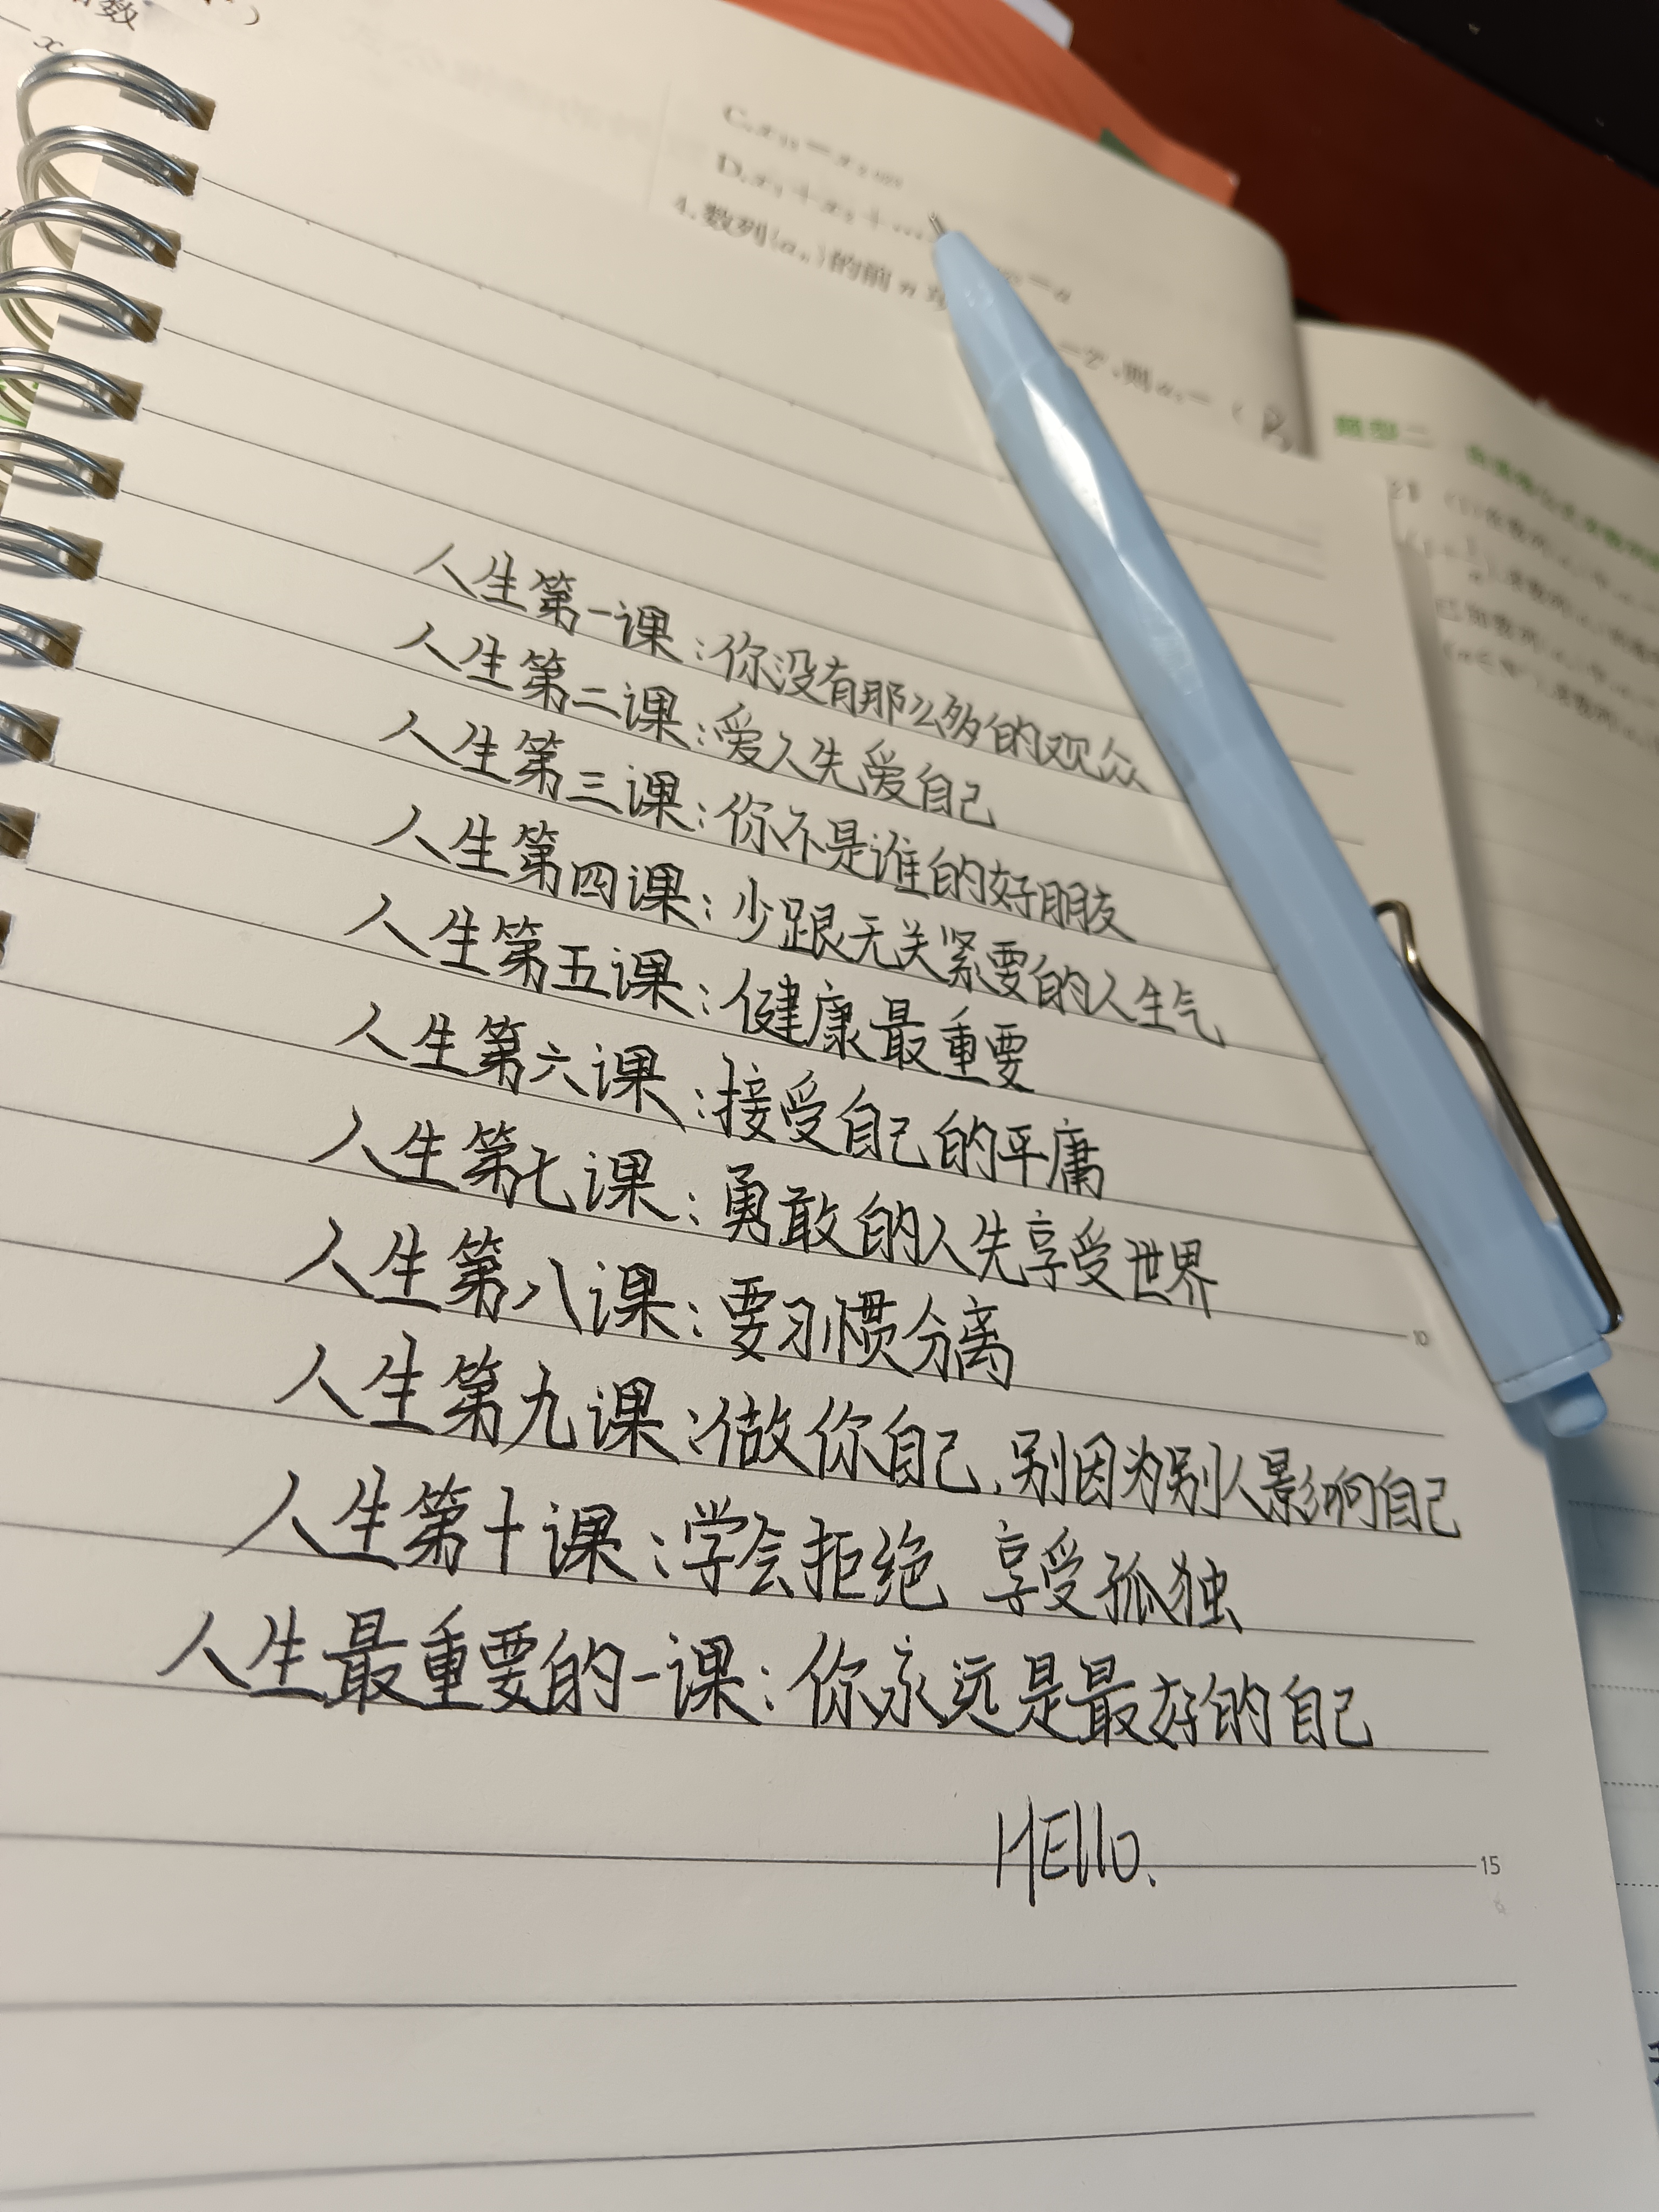 数
C.x
D.x₁+x₂+…
4.数列{aₙ}的前n
,则a
题型二
人生第一课:你没有那么多的观众
人生第二课:爱人先爱自己
人生第三课:你不是谁的好朋友
人生第四课:少跟无关紧要的人生气
人生第五课:健康最重要
人生第六课:接受自己的平庸
人生第七课:勇敢的人先享受世界
10
人生第八课:要习惯分离
人生第九课:做你自己.别因为别人影响自己
人生第十课:学会拒绝 享受孤独
人生最重要的一课:你永远是最好的自己
HEllo.
15